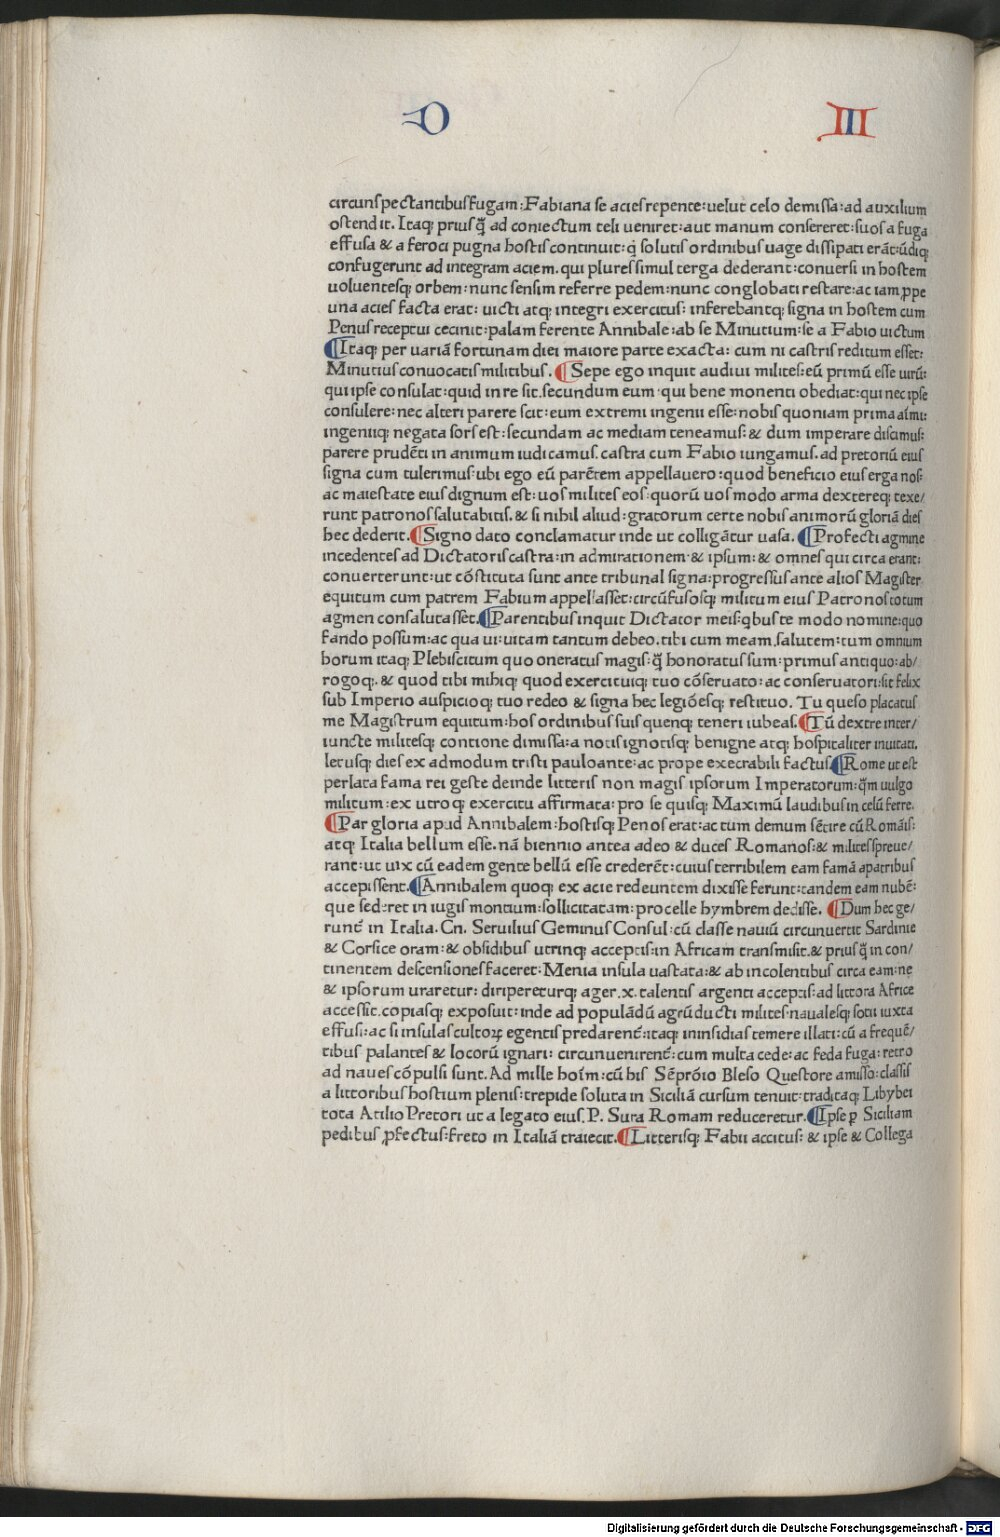 D III
circunspectantibus fugam: Fabiana se acies repente: uelut celo demissa: ad auxilium
ostendit. Itaq; prius q̃ ad coniectum teli ueniret: aut manum consereret: suos a fuga
effusa & a feroci pugna hostis continuit: q̃ solutis ordinibus uage dissipati erãt: ũdiq;
confugerunt ad integram aciem. qui plures simul terga dederant: conuersi in hostem
uoluentesq; orbem: nunc sensim referre pedem: nunc conglobati restare: ac iam ꝓpe
una acies facta erat: uicti atq; integri exercitus: inferebantq; signa in hostem cum
Penus receptui cecinit: palam ferente Annibale: ab se Minutium: se a Fabio uictum
¶Itaq; per uariã fortunam diei maiore parte exacta: cum ni castris reditum esset:
Minutius conuocatis militibus. ¶Sepe ego inquit audiui milites: eũ primũ esse uirũ:
qui ipse consulat: quid in re sit. secundum eum: qui bene monenti obediat: qui nec ipse
consulere: nec alteri parere scit: eum extremi ingenii esse: nobis quoniam prima aĩmi:
ingeniiq; negata sors est: secundam ac mediam teneamus: & dum imperare discimus:
parere prudẽti in animum iudicamus. castra cum Fabio iungamus. ad pretoriũ eius
signa cum tulerimus: ubi ego eũ parẽtem appellauero: quod beneficio eius erga nos:
ac maiestate eius dignum est: uos milites eos: quorũ uos modo arma dextereq; texe/
runt patronos salutabitis. & si nihil aliud: gratorum certe nobis animorũ gloriã dies
hec dederit. ¶Signo dato conclamatur inde ut colligãtur uasa. ¶Profecti agmine
incedentes ad Dictatoris castra: in admirationem & ipsum: & omnes qui circa erant:
conuerterunt: ut cõstituta sunt ante tribunal signa: progressus ante alios Magister
equitum cum patrem Fabium appellasset: circũfusosq; militum eius Patronos totum
agmen consalutasset. ¶Parentibus inquit Dictator meis: qbus te modo nomine: quo
fando possum: ac qua ui: uitam tantum debeo. tibi cum meam salutem: tum omnium
horum itaq; Plebiscitum quo oneratus magis: q̃ honoratus sum: primus antiquo: ab/
rogoq;. & quod tibi mihiq; quod exercituiq; tuo cõseruato: ac conseruatori: sit felix
sub Imperio auspicioq; tuo redeo & signa hec legiõesq; restituo. Tu queso placatus
me Magistrum equitum: hos ordinibus suis quenq; teneri iubeas. ¶Tũ dextre inter/
iuncte militesq; contione dimissa: a notis ignotisq; benigne atq; hospitaliter inuitati.
letusq; dies ex admodum tristi pauloante: ac prope execrabili factus ¶Rome ut est
perlata fama rei geste deinde litteris non magis ipsorum Imperatorum: q̃m uulgo
militum: ex utroq; exercitu affirmata: pro se quisq; Maximũ laudibus in celũ ferre.
¶Par gloria apud Annibalem: hostisq; Penos erat: ac tum demum sẽtire cũ Romãis:
atq; Italia bellum esse. nã biennio antea adeo & duces Romanos: & milites spreue/
rant: ut uix cũ eadem gente bellũ esse crederẽt: cuius terribilem eam famã apatribus
accepissent. ¶Annibalem quoq; ex acie redeuntem dixisse ferunt: tandem eam nubẽ:
que sederet in iugis montium: sollicitatam: procelle hymbrem dedisse. ¶Dum hec ge/
runt̃ in Italia. Cn. Seruilius Geminus Consul: cũ classe nauiũ circunuertit Sardinie
& Corsice oram: & obsidibus utrinq; acceptis: in Africam transmisit. & prius q̃ in con/
tinentem descensiones faceret: Menia insula uastata: & ab incolentibus circa eam: ne
& ipsorum uraretur: diripereturq; ager. x. talentis argenti acceptis: ad littora Africe
accessit. copiasq; exposuit: inde ad populãdũ agrũ ducti milites: naualesq; sotii iuxta
effusi: ac si insulas cultoꝝ egentis predarent̃: itaq; in insidias temere illati: cũ a frequẽ/
tibus palantes & locorũ ignari: circunuenirent̃: cum multa cede: ac feda fuga: retro
ad naues cõpulsi sunt. Ad mille hoĩm: cũ his Sẽprõio Bleso Questore amisso: classis
a littoribus hostium plenis: trepide soluta in Siciliã cursum tenuit: traditaq; Libybei
tota Atilio Pretori ut a legato eius. P. Sura Romam reduceretur. ¶Ipse ꝑ Siciliam
pedibus ꝓfectus: freto in Italiã traiecit. ¶Litterisq; Fabii accitus: & ipse & Collega
Digitalisierung gefördert durch die Deutsche Forschungsgemeinschaft - DFG